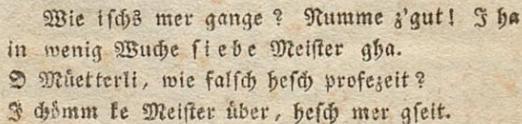 Wie iſchs mer gange? Numme z'gut! J ha
in wenig Wuche ſiebe Meiſter gha.
O Müetterli, wie falſch heſch profezeit?
J chömm ke Meiſter über, heſch mer gſeit.